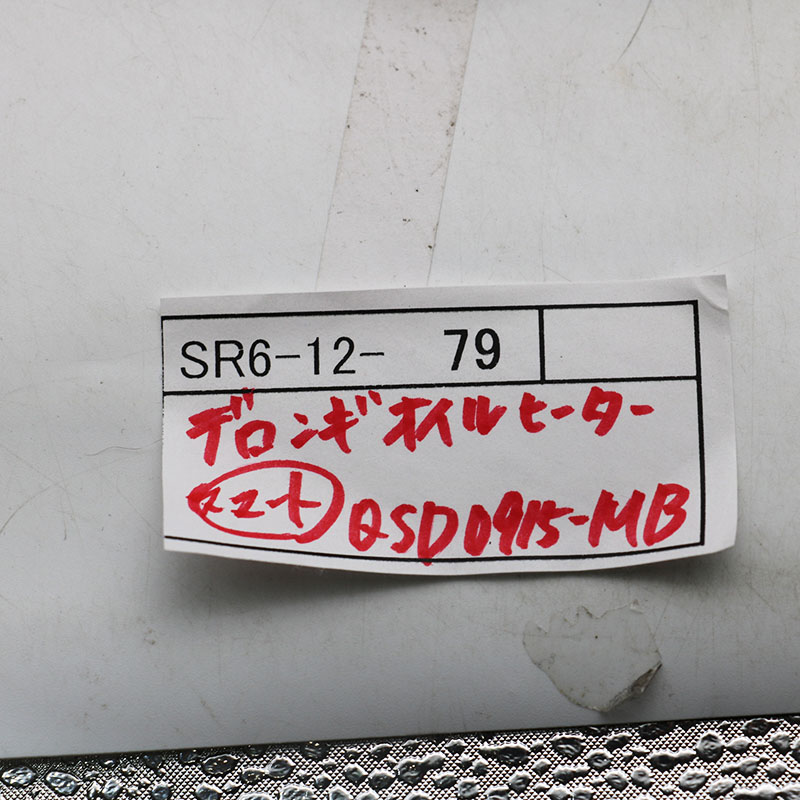 SR6-12- 79
デロンギオイルヒーター
QSD0915-MB